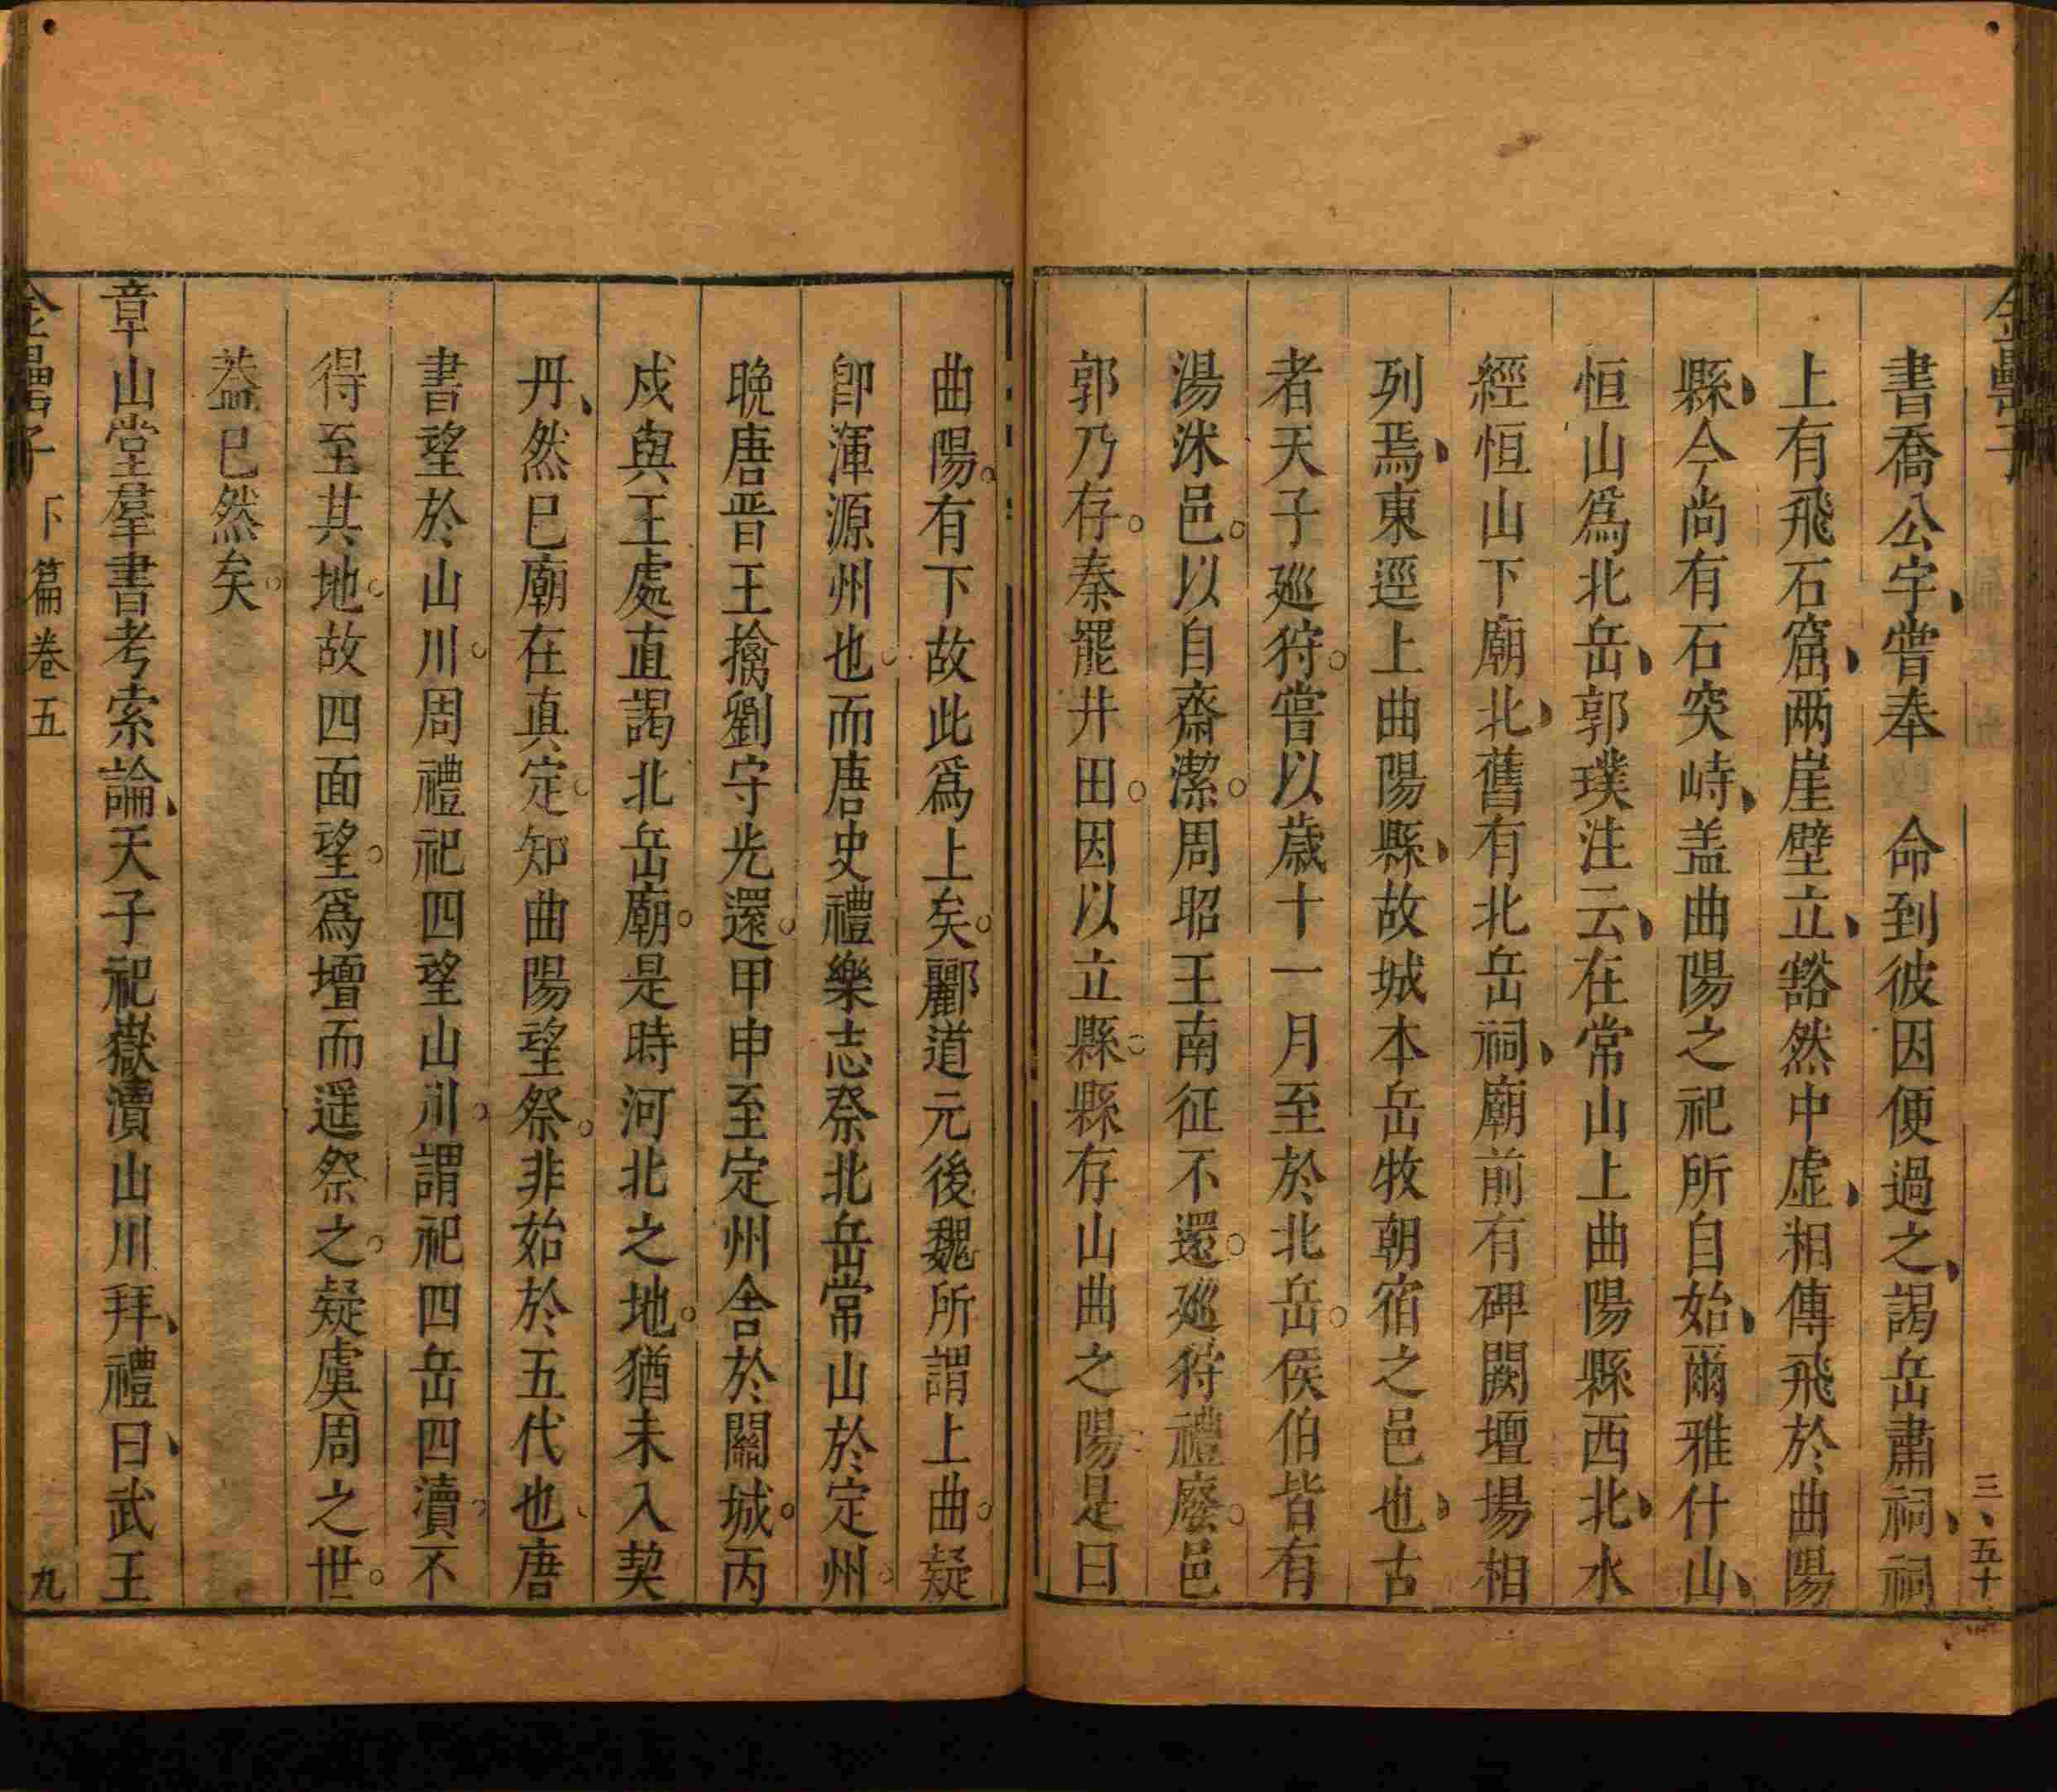 金罍子
三、五十
書喬公宇嘗奉　命到彼因便過之謁岳肅祠祠
上有飛石窟两崖壁立豁然中虛相傳飛於曲陽
縣今尚有石突峙盖曲陽之祀所自始爾雅什山
恒山爲北岳郭璞注云在常山上曲陽縣西北水
經恒山下廟北舊有北岳祠廟前有碑闕壇場相
列焉東逕上曲陽縣故城本岳牧朝宿之邑也古
者天子廵狩嘗以歳十一月至於北岳侯伯皆有
湯沐邑以自齋潔周昭王南征不還廵狩禮廢邑
郭乃存秦罷井田因以立縣縣存山曲之陽是曰
曲陽有下故此爲上矣酈道元後魏所謂上曲疑
卽渾源州也而唐史禮樂志祭北岳常山於定州
晚唐晋王擒劉守光還甲申至定州舍於關城丙
戍與王處直謁北岳廟是時河北之地猶未入契
丹然已廟在真定知曲陽望祭非始於五代也唐
書望於山川周禮祀四望山川謂祀四岳四瀆不
得至其地故四面望爲壇而遥祭之疑虞周之世
葢已然矣
章山堂羣書考索論天子祀嶽瀆山川拜禮曰武王
金罍子　下篇卷五　九